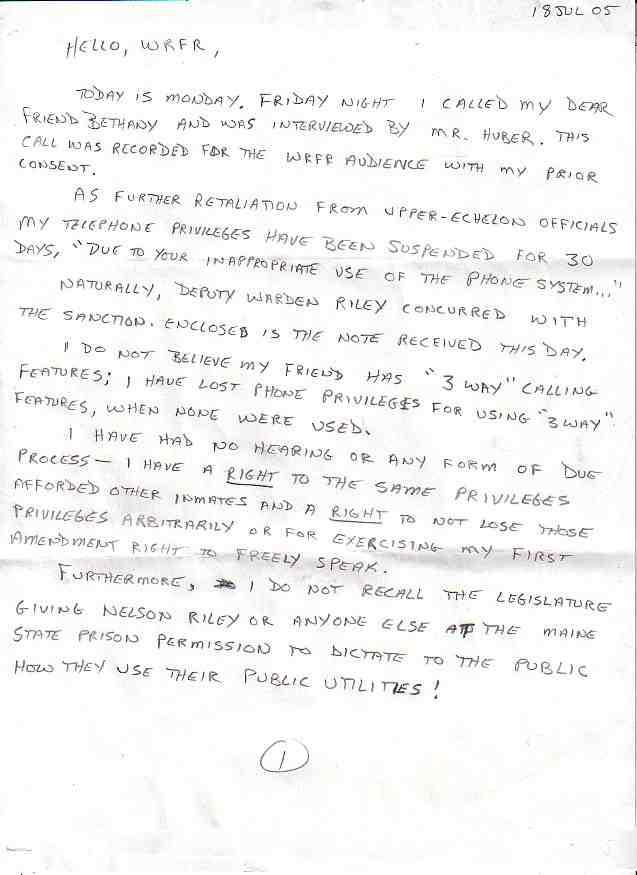 18 JUL 05
HELLO, WRFR,
TODAY IS MONDAY. FRIDAY NIGHT I CALLED MY DEAR
FRIEND BETHANY AND WAS INTERVIEWED BY MR. HUBER. THIS
CALL WAS RECORDED FOR THE WRFR AUDIENCE WITH MY PRIOR
CONSENT.
AS FURTHER RETALIATION FROM UPPER-ECHELON OFFICIALS
MY TELEPHONE PRIVILEGES HAVE BEEN SUSPENDED FOR 30
DAYS, "DUE TO YOUR INAPPROPRIATE USE OF THE PHONE SYSTEM..."
NATURALLY, DEPUTY WARDEN RILEY CONCURRED WITH
THE SANCTION. ENCLOSED IS THE NOTE RECEIVED THIS DAY.
I DO NOT BELIEVE MY FRIEND HAS "3 WAY" CALLING
FEATURES; I HAVE LOST PHONE PRIVILEGES FOR USING "3 WAY"
FEATURES, WHEN NONE WERE USED.
I HAVE HAD NO HEARING OR ANY FORM OF DUE
PROCESS — I HAVE A RIGHT TO THE SAME PRIVILEGES
AFFORDED OTHER INMATES AND A RIGHT TO NOT LOSE THOSE
PRIVILEGES ARBITRARILY OR FOR EXERCISING MY FIRST
AMENDMENT RIGHT TO FREELY SPEAK.
FURTHERMORE, I DO NOT RECALL THE LEGISLATURE
GIVING NELSON RILEY OR ANYONE ELSE AT THE MAINE
STATE PRISON PERMISSION TO DICTATE TO THE PUBLIC
HOW THEY USE THEIR PUBLIC UTILITIES!
1